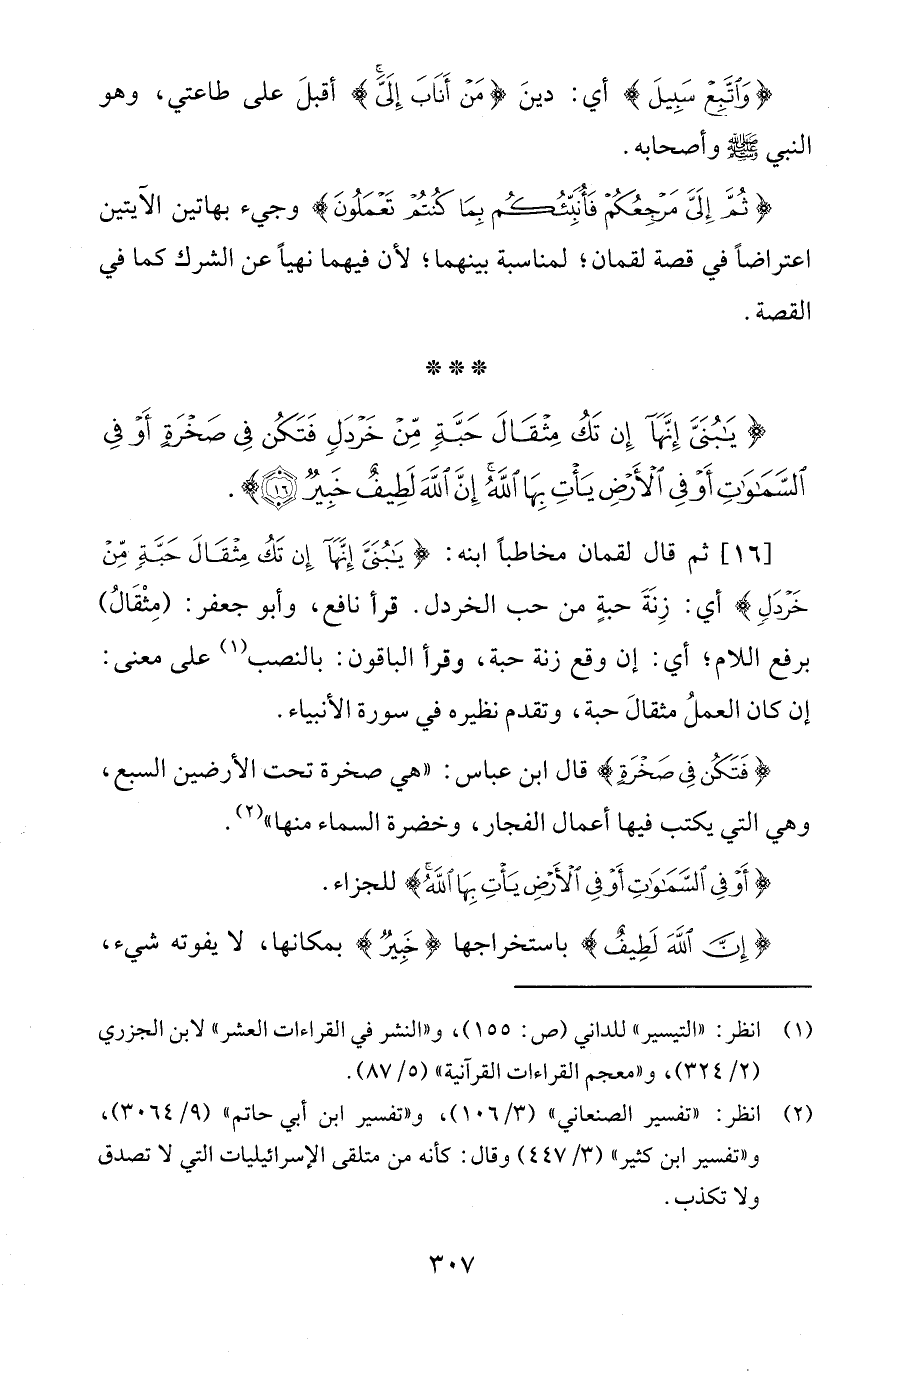 ﴿وَٱتَّبِعْ سَبِيلَ﴾ أي: دينَ ﴿مَنْ أَنَابَ إِلَىَّ ۚ﴾ أقبلَ على طاعتي، وهو
النبي ﷺ وأصحابه.
﴿ثُمَّ إِلَىَّ مَرْجِعُكُمْ فَأُنَبِّئُكُم بِمَا كُنتُمْ تَعْمَلُونَ﴾ وجيء بهاتين الآيتين
اعتراضاً في قصة لقمان؛ لمناسبة بينهما؛ لأن فيهما نهياً عن الشرك كما في
القصة.
* * *
﴿يَٰبُنَىَّ إِنَّهَآ إِن تَكُ مِثْقَالَ حَبَّةٍ مِّنْ خَرْدَلٍ فَتَكُن فِى صَخْرَةٍ أَوْ فِى
ٱلسَّمَٰوَٰتِ أَوْ فِى ٱلْأَرْضِ يَأْتِ بِهَا ٱللَّهُ ۚ إِنَّ ٱللَّهَ لَطِيفٌ خَبِيرٌ ۝١٦﴾.
[١٦] ثم قال لقمان مخاطباً ابنه: ﴿يَٰبُنَىَّ إِنَّهَآ إِن تَكُ مِثْقَالَ حَبَّةٍ مِّنْ
خَرْدَلٍ﴾ أي: زِنَةَ حبةٍ من حب الخردل. قرأ نافع، وأبو جعفر: (مِثْقَالُ)
برفع اللام؛ أي: إن وقع زنة حبة، وقرأ الباقون: بالنصب(١) على معنى:
إن كان العملُ مثقالَ حبة، وتقدم نظيره في سورة الأنبياء.
﴿فَتَكُن فِى صَخْرَةٍ﴾ قال ابن عباس: «هي صخرة تحت الأرضين السبع،
وهي التي يكتب فيها أعمال الفجار، وخضرة السماء منها»(٢).
﴿أَوْ فِى ٱلسَّمَٰوَٰتِ أَوْ فِى ٱلْأَرْضِ يَأْتِ بِهَا ٱللَّهُ ۚ﴾ للجزاء.
﴿إِنَّ ٱللَّهَ لَطِيفٌ﴾ باستخراجها ﴿خَبِيرٌ﴾ بمكانها، لا يفوته شيء،
(١) انظر: «التيسير» للداني (ص: ١٥٥)، و«النشر في القراءات العشر» لابن الجزري
(٢/ ٣٢٤)، و«معجم القراءات القرآنية» (٥/ ٨٧).
(٢) انظر: «تفسير الصنعاني» (٣/ ١٠٦)، و«تفسير ابن أبي حاتم» (٩/ ٣٠٦٤)،
و«تفسير ابن كثير» (٣/ ٤٤٧) وقال: كأنه من متلقى الإسرائيليات التي لا تصدق
ولا تكذب.
٣٠٧